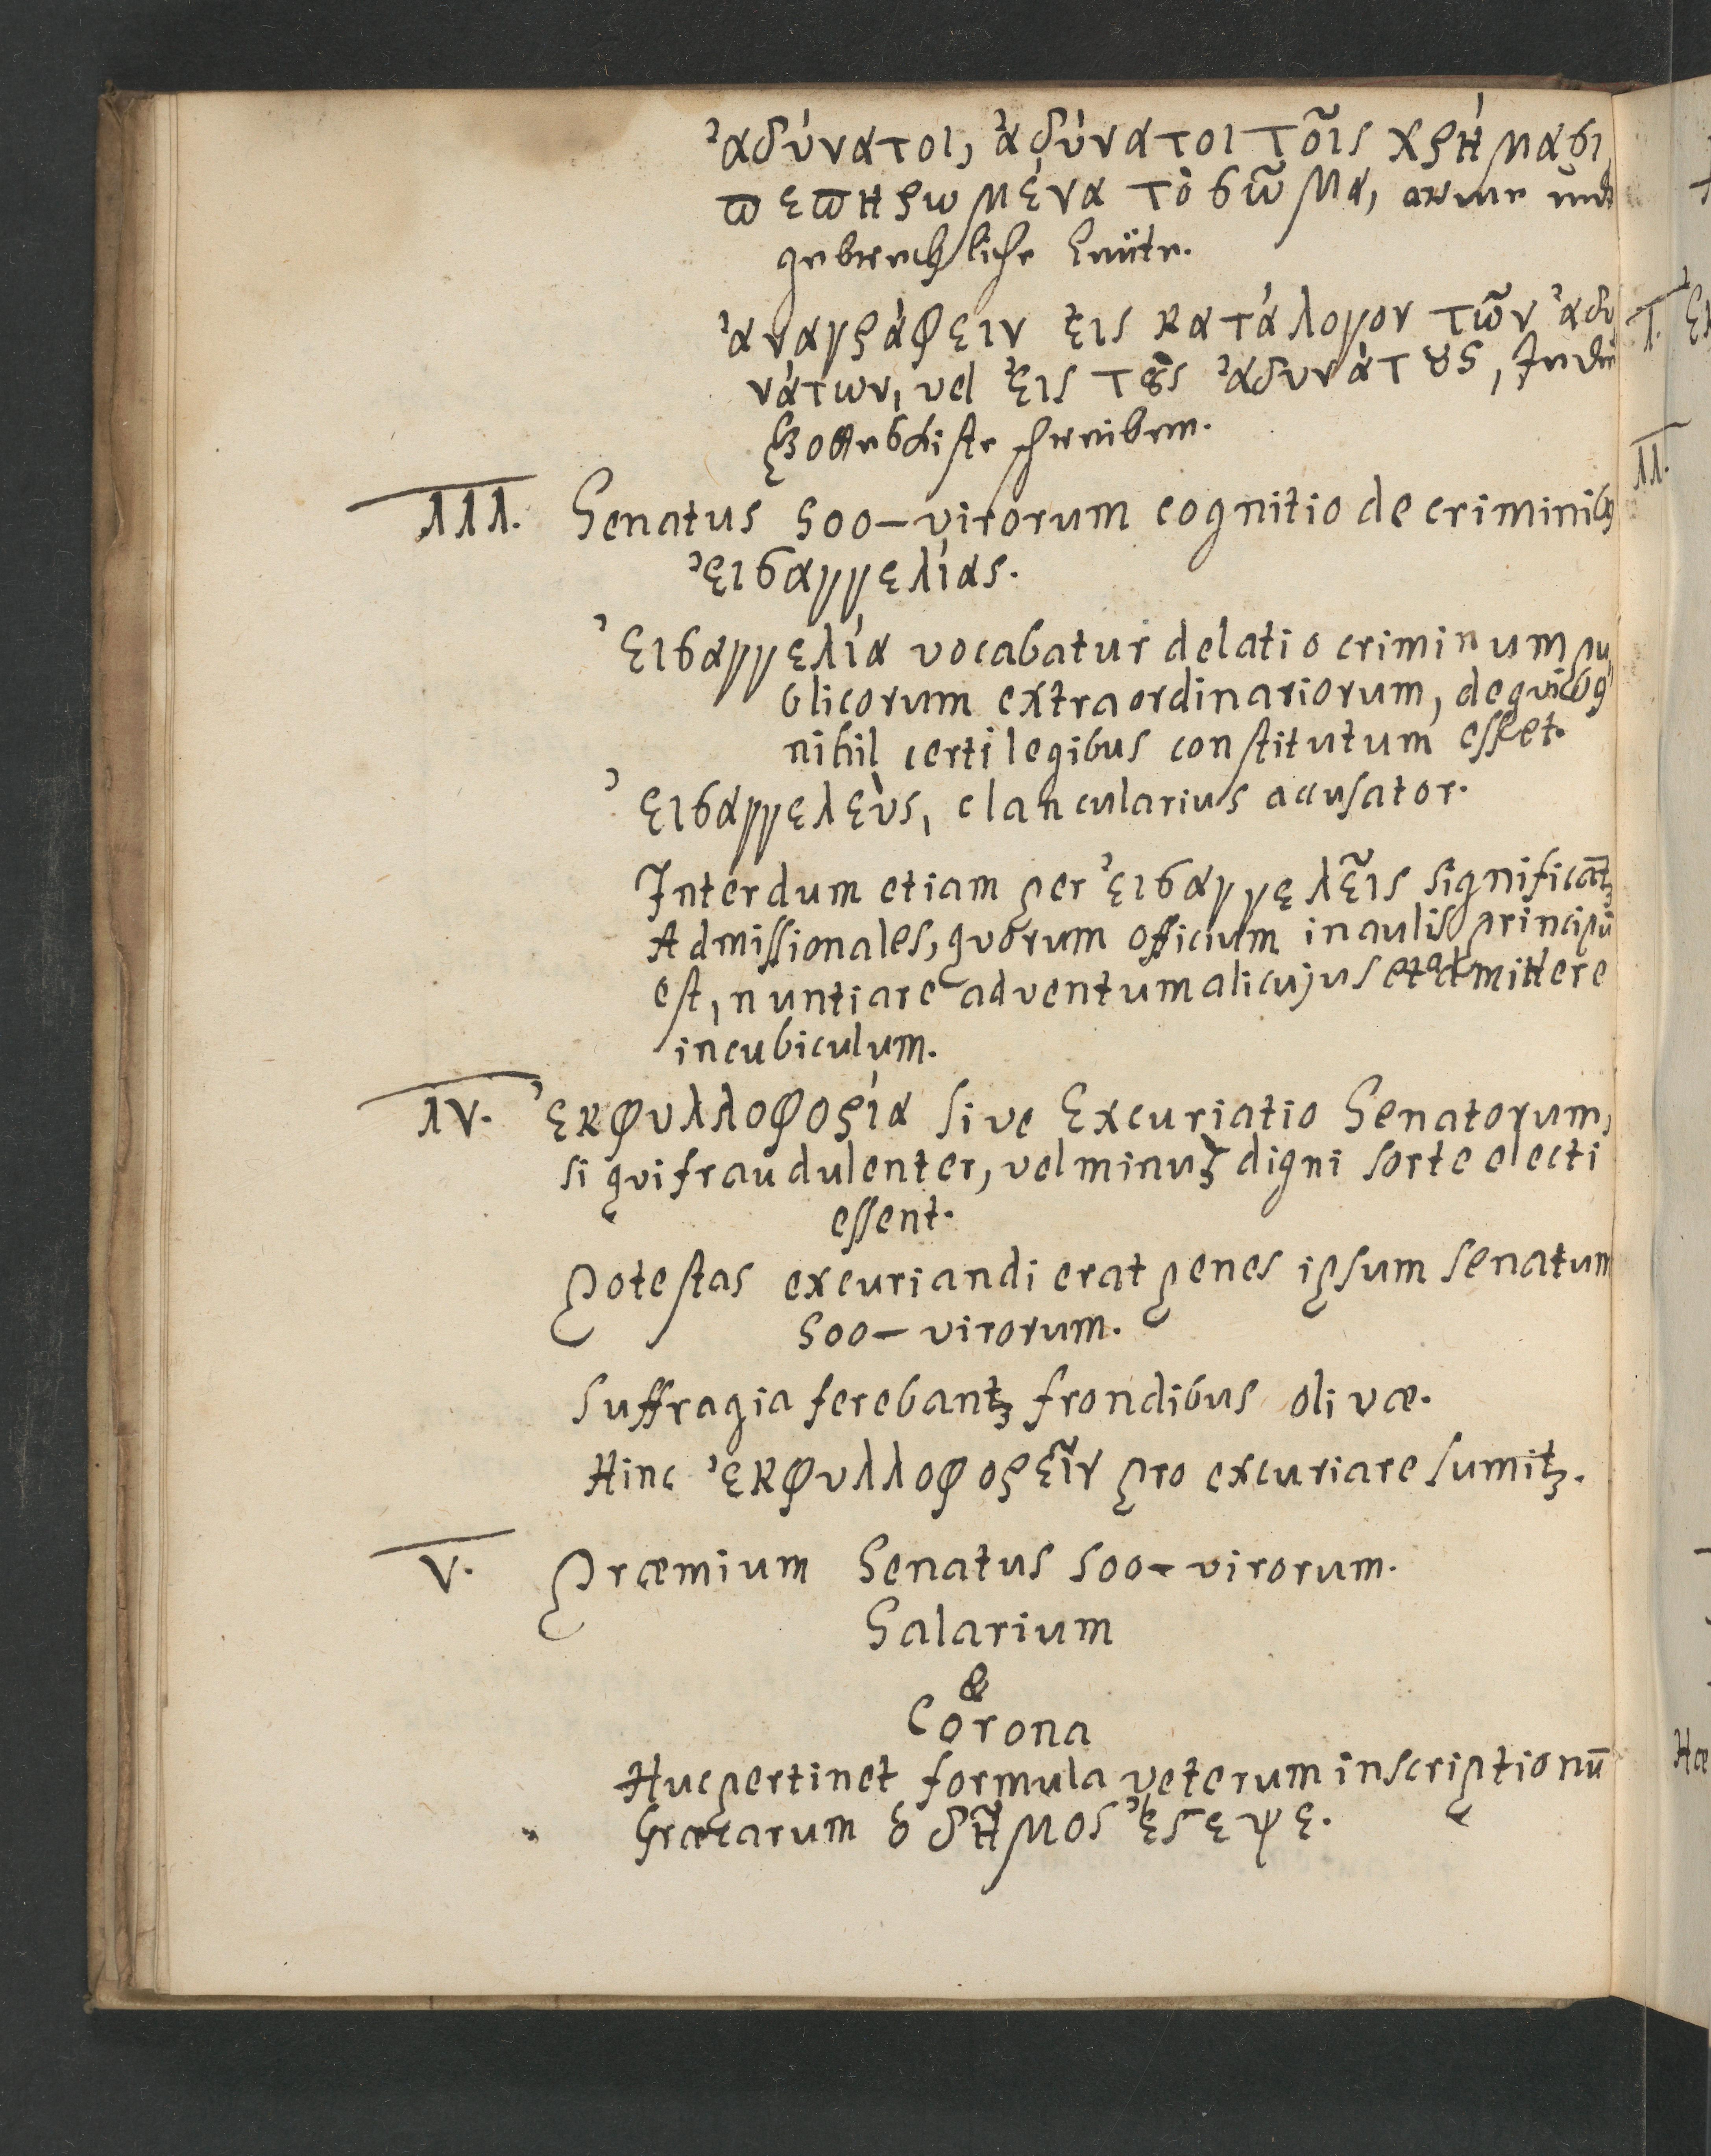 ἀδύνατοι, ἀδύνατοι τοῖς χρήμασι,
πεπηρωμένα τὸ σῶμα, arme und
gebrechliche Leüte.
ἀναγράφειν εἰς κατάλογον τῶν ἀδυ
νάτων, vel εἰς τοὺς ἀδυνάτους, In die
schreiben.
III. Senatus 500-virorum cognitio de criminibꝫ
εἰσαγγελίας.
εἰσαγγελία vocabatur delatio criminum pu
blicorum extraordinariorum, de quibꝫ
nihil certi legibus constitutum esset.
εἰσαγγελεὺς, clancularius accusator.
Interdum etiam per εἰσαγγελεῖς significātꝫ
Admissionales, quorum officium in aulis principū
est, nuntiare adventum alicujus et admittere
in cubiculum.
IV. ἐκφυλλοφορία sive Excuriatio Senatorum,
si qui fraudulenter, vel minus digni sorte electi
essent.
Potestas excuriandi erat penes ipsum senatum
500-virorum.
Suffragia ferebantꝫ frondibus olivæ.
Hinc ἐκφυλλοφορεῖν pro excuriare sumitꝫ.
V. Præmium Senatus 500-virorum.
Salarium
&
Corona
Huc pertinet formula veterum inscriptionū
Græcarum ὁ δῆμος ἔϛεψε.
I.
II.
Hæ